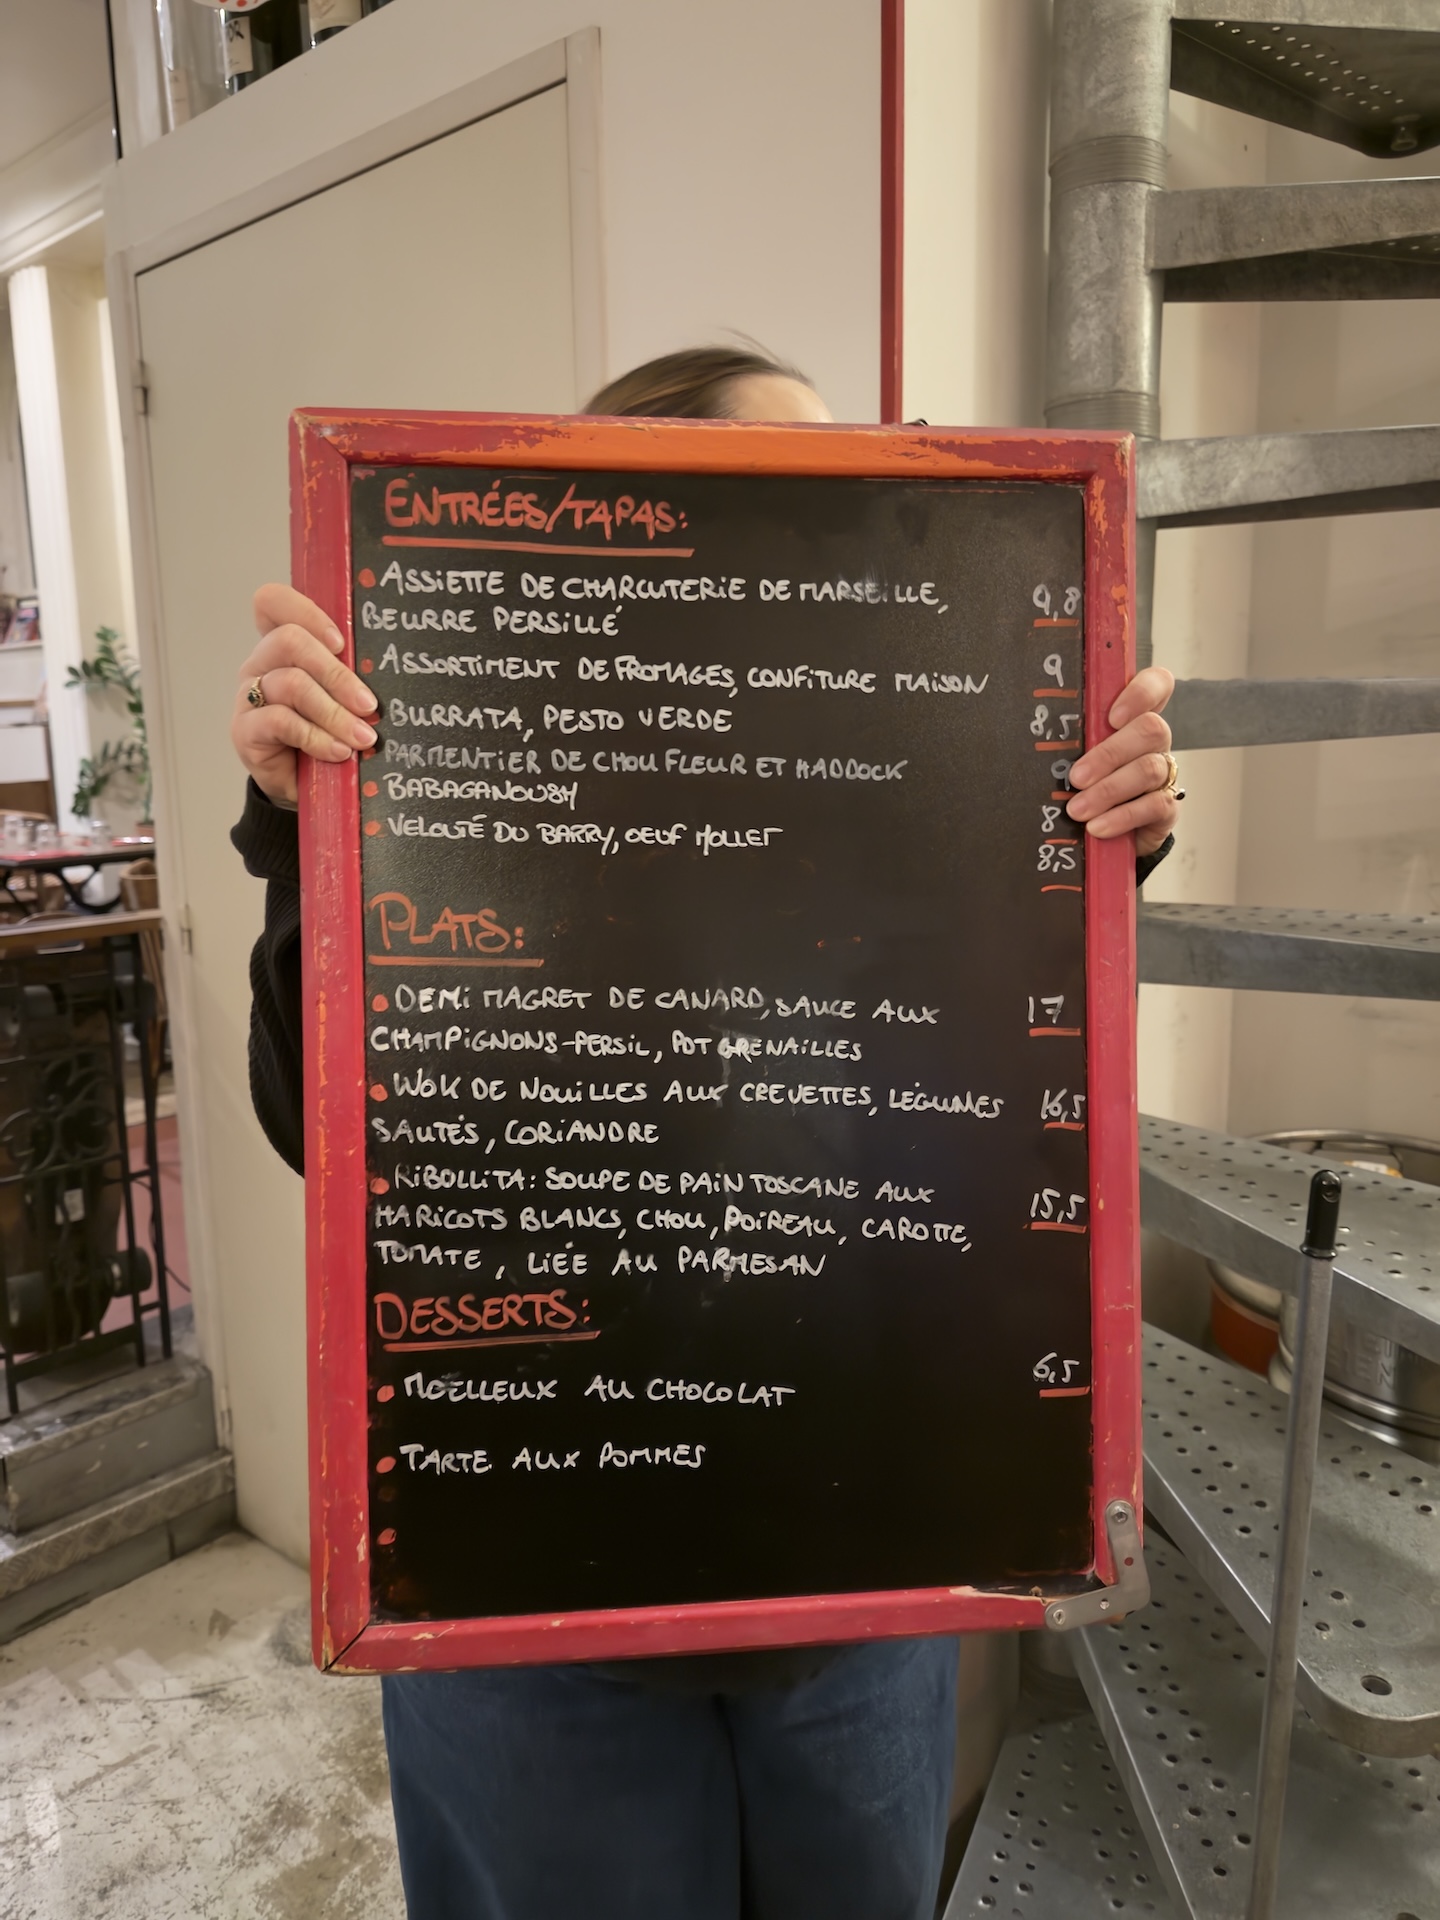 ENTRÉES/TAPAS:
ASSIETTE DE CHARCUTERIE DE MARSEILLE, 9,8
BEURRE PERSILLÉ
ASSORTIMENT DE FROMAGES, CONFITURE MAISON 9
BURRATA, PESTO VERDE 8,5
PARMENTIER DE CHOU FLEUR ET HADDOCK 9
BABAGANOUSH 8
VELOUTÉ DU BARRY, OEUF MOLLET 8,5
PLATS:
DEMI MAGRET DE CANARD, SAUCE AUX 17
CHAMPIGNONS-PERSIL, PDT GRENAILLES
WOK DE NOUILLES AUX CREVETTES, LÉGUMES 16,5
SAUTÉS, CORIANDRE
RIBOLLITA: SOUPE DE PAIN TOSCANE AUX
HARICOTS BLANCS, CHOU, POIREAU, CAROTTE, 15,5
TOMATE, LIÉE AU PARMESAN
DESSERTS:
MOËLLEUX AU CHOCOLAT 6,5
TARTE AUX POMMES